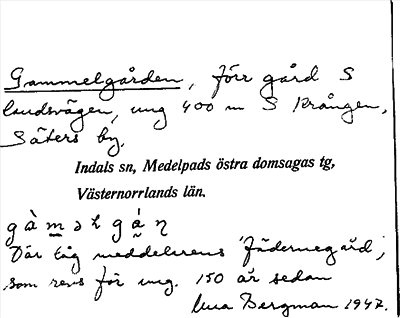 Gammelgården, förr gård S
landsvägen, ung 400 m S Krången,
Säters by.
Indals sn, Medelpads östra domsagas tg,
Västernorrlands län.
Där låg meddelarens fädernegård,
som revs för ung. 150 år sedan
Bergman 1947.